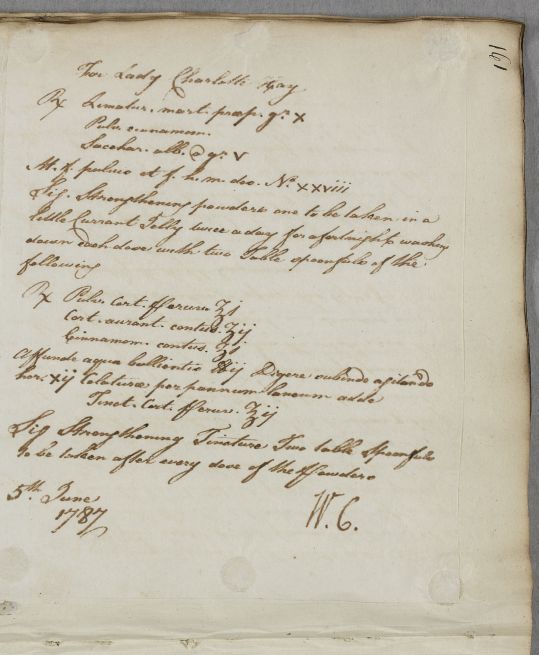 161
For Lady Charlotte Hay
℞ Limatur. mart. præp. gr. X
Pulv. cinnamom.
Sacchar. alb. @ gr. V
M. f. pulvis et f. h. m. dos. No. XXviii
Sig. Strengthening powders one to be taken in a
little Currant Jelly twice a day for a fortnight washing
down each dose with two table spoonfuls of the
following
℞ Pulv. Cort. Peruv. ℥j
Cort. aurant. contus. ʒij
Cinnamom. contus. ʒj
Affunde aqua bullientis ℔ij Digere subinde agitando
hor. Xij Colaturæ per pannum laneum adde
Tinct. Cort. Peruv. ℥ij
Sig. Strengthening Tincture Two table spoonfuls
to be taken after every dose of the Powders
5th June
1787
W. C.